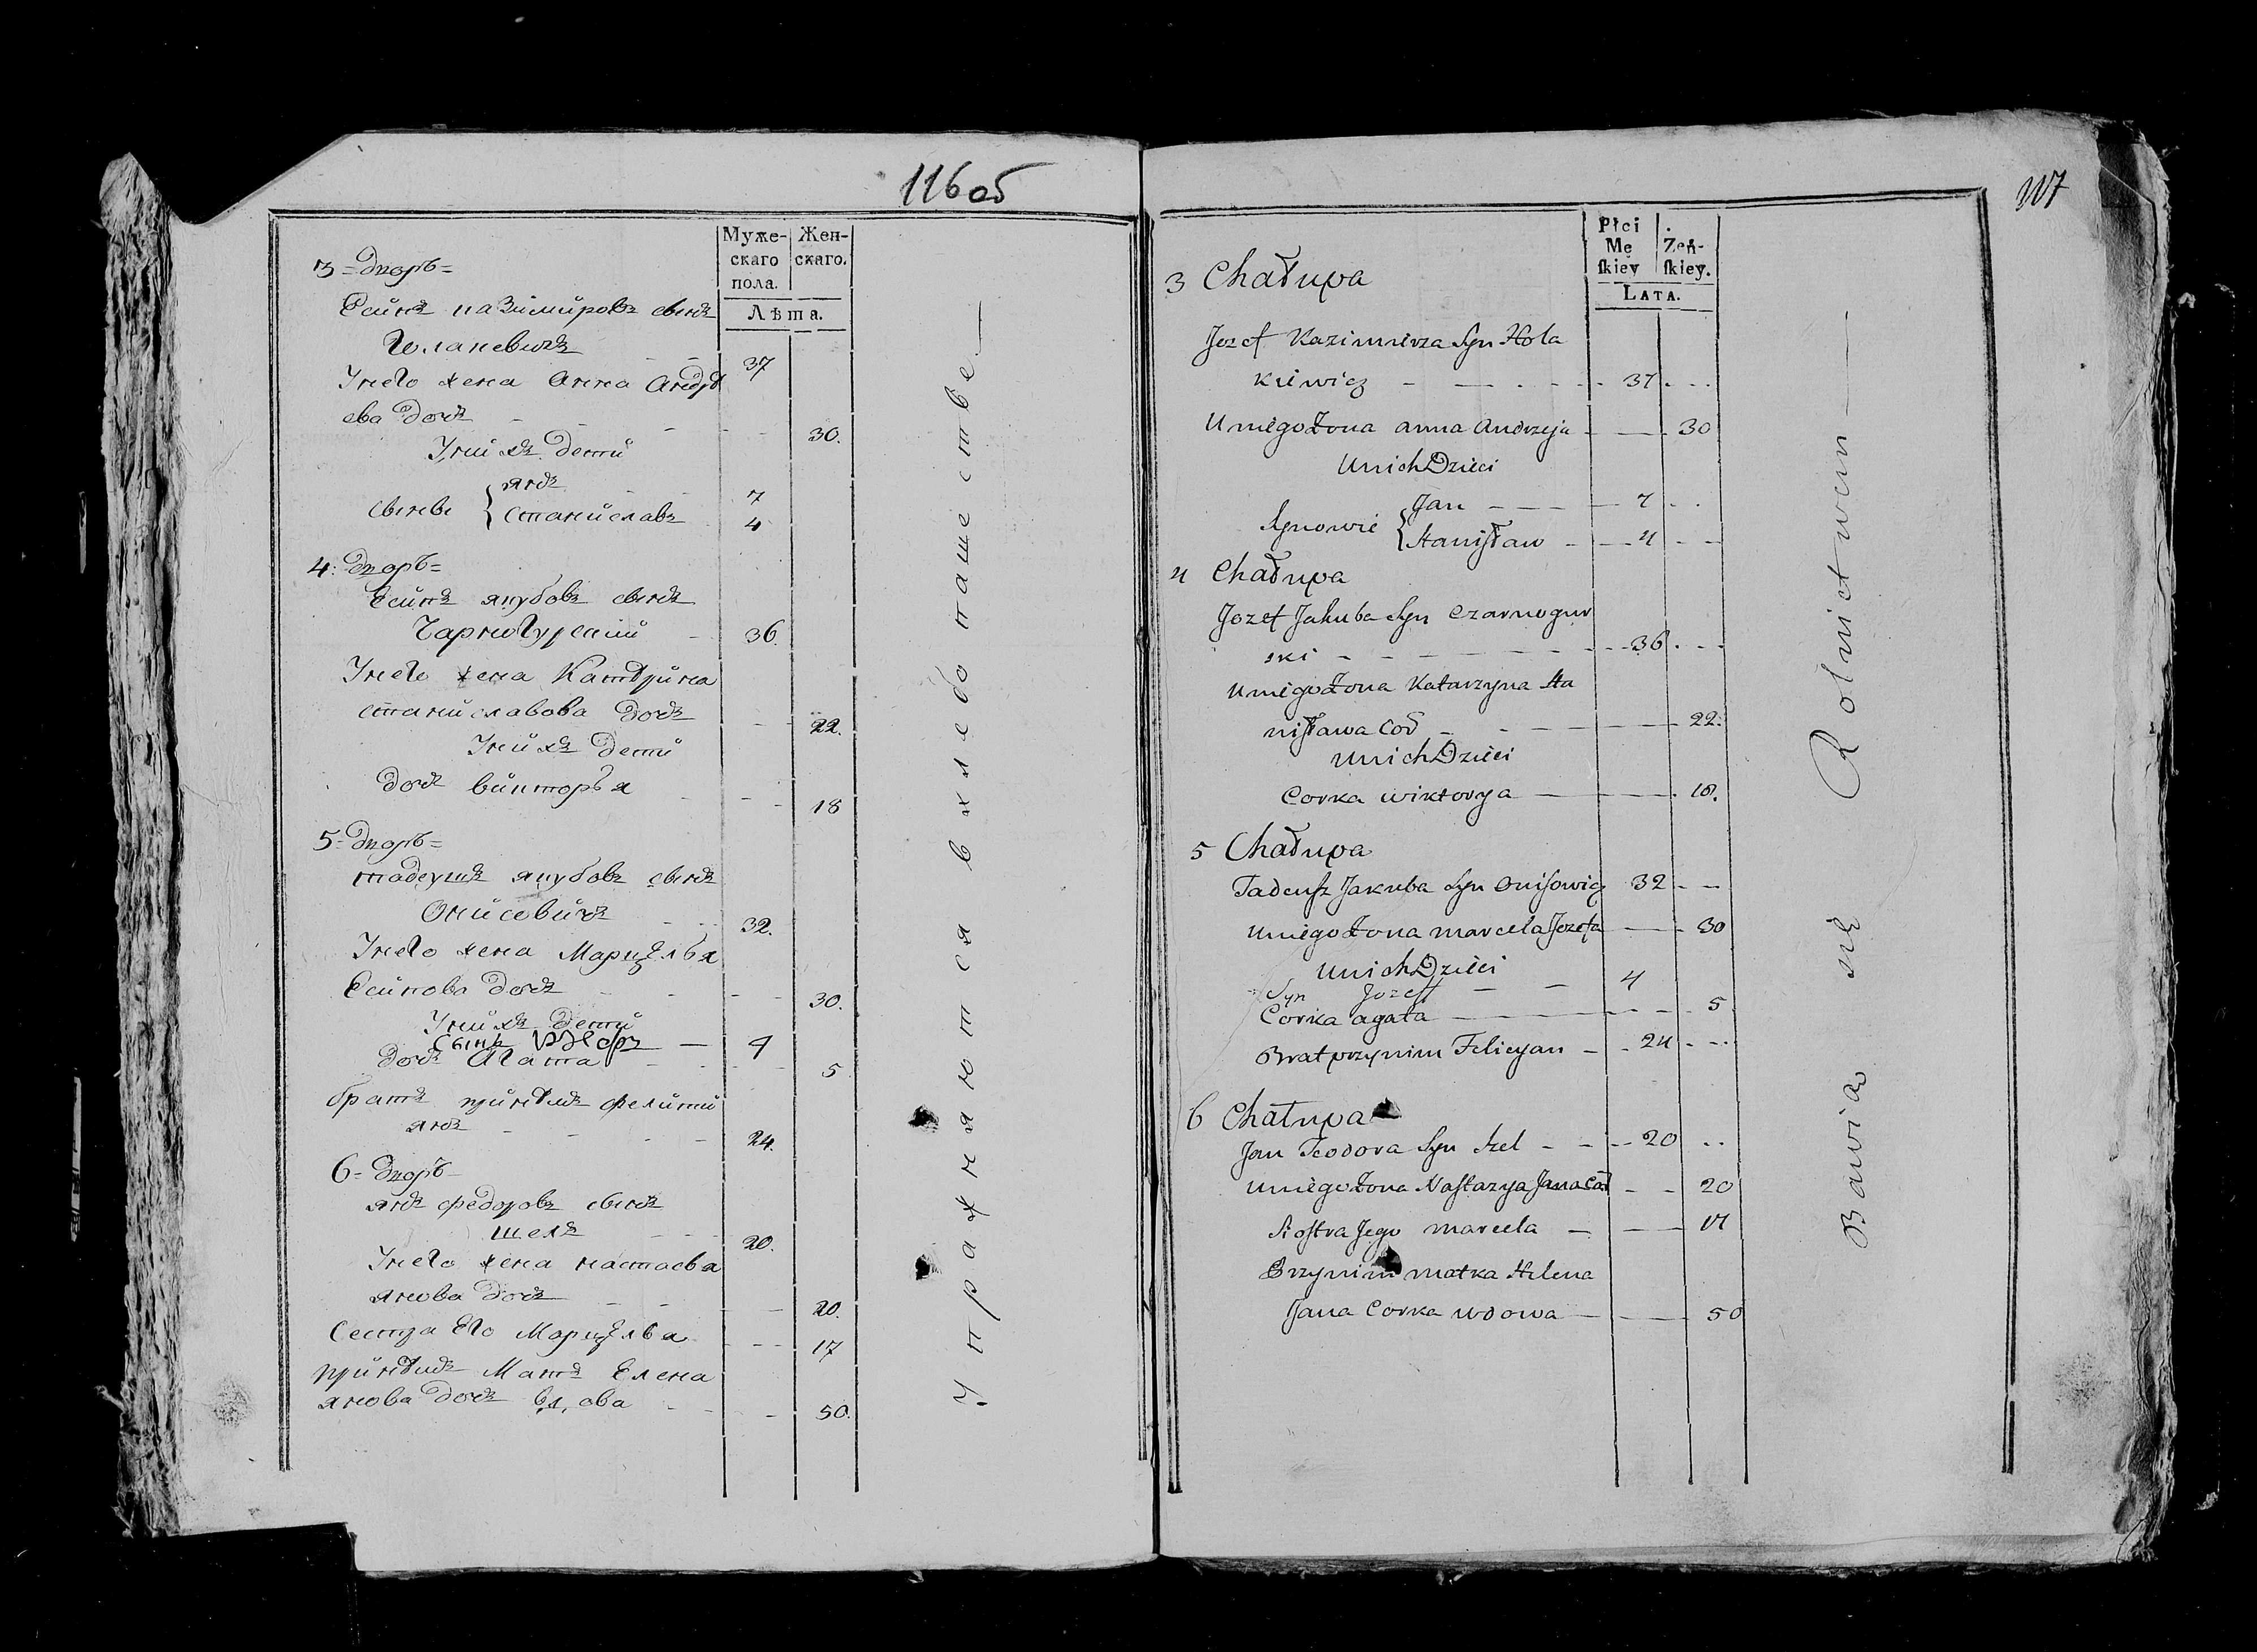 116 об
Муже-
скаго
пола.
Жен-
скаго.
Лѣта.
3 = Дворъ =
Есипъ Казимировъ сынъ
Голакевичъ - - 37
У него жена Анна Андре
ева дочь - - - 30.
У них детй
сыневе { янъ - - 7
станиславъ 4
4: Дворъ =
Есипъ якубовъ сынъ
Чарногурский - 36.
У него жена Катдрина
станиславова дочь - - 22.
У них детй
дочь викторья - - - 18
5 = Дворъ =
тадеушъ якубовъ сынъ
Онисевичъ - - 32.
У него жена Марцелья
Есипова дочь - - - 30.
У них детй
сынъ Юзефъ — 4
дочь Агата - - - 5
братъ принемъ фелити
янъ - - - - 24.
6 = Дворъ
янъ федоровъ сынъ
шелъ - - 20.
У него жена настасья
янова дочь - - - 20.
Сестра Его Марцелья - - - 17
принемъ Мать Елена
янова дочь вдова - - - 50.
Упражняются в хлебопашестве —
117
Płci
Mę
ſkiey
Zeń-
ſkiey.
LATA.
3 Chałupa
Jozef Kazimierza Syn Hola
kiewicz - — - - - 37 - - -
U niego Żona anna Andrzeja - — - 30
U nich Dzieci
Synowie { Jan - - - — 7 - -
Stanisław - — 4 - —
4 Chałupa
Jozef Jakuba Syn Czarnogur
ski - - - - - - - 36 - - -
U niego Żona Katarzyna Sta
nisława Cod - - — — 22:
U nich Dzieci
Corka Wiktorya — — - 18.
5 Chałupa
Tadeusz Jakuba Syn Onisowicz 32 - —
U niego Żona Marcela Jozefa — - 30
U nich Dzieci
Syn Jozeff — - 4
Corka agata — — - - - 5
Brat przy nim Felicyan - - 24 - - -
6 Chałupa
Jan Teodora Syn Szel - - - - 20 - -
U niego Żona Nastazya Jana Cod - - 20
Siostra Jego Marcela — — 17
Przy nim Matka Helena
Jana Corka Wdowa — — 50
Bawią się Rolnictwem —